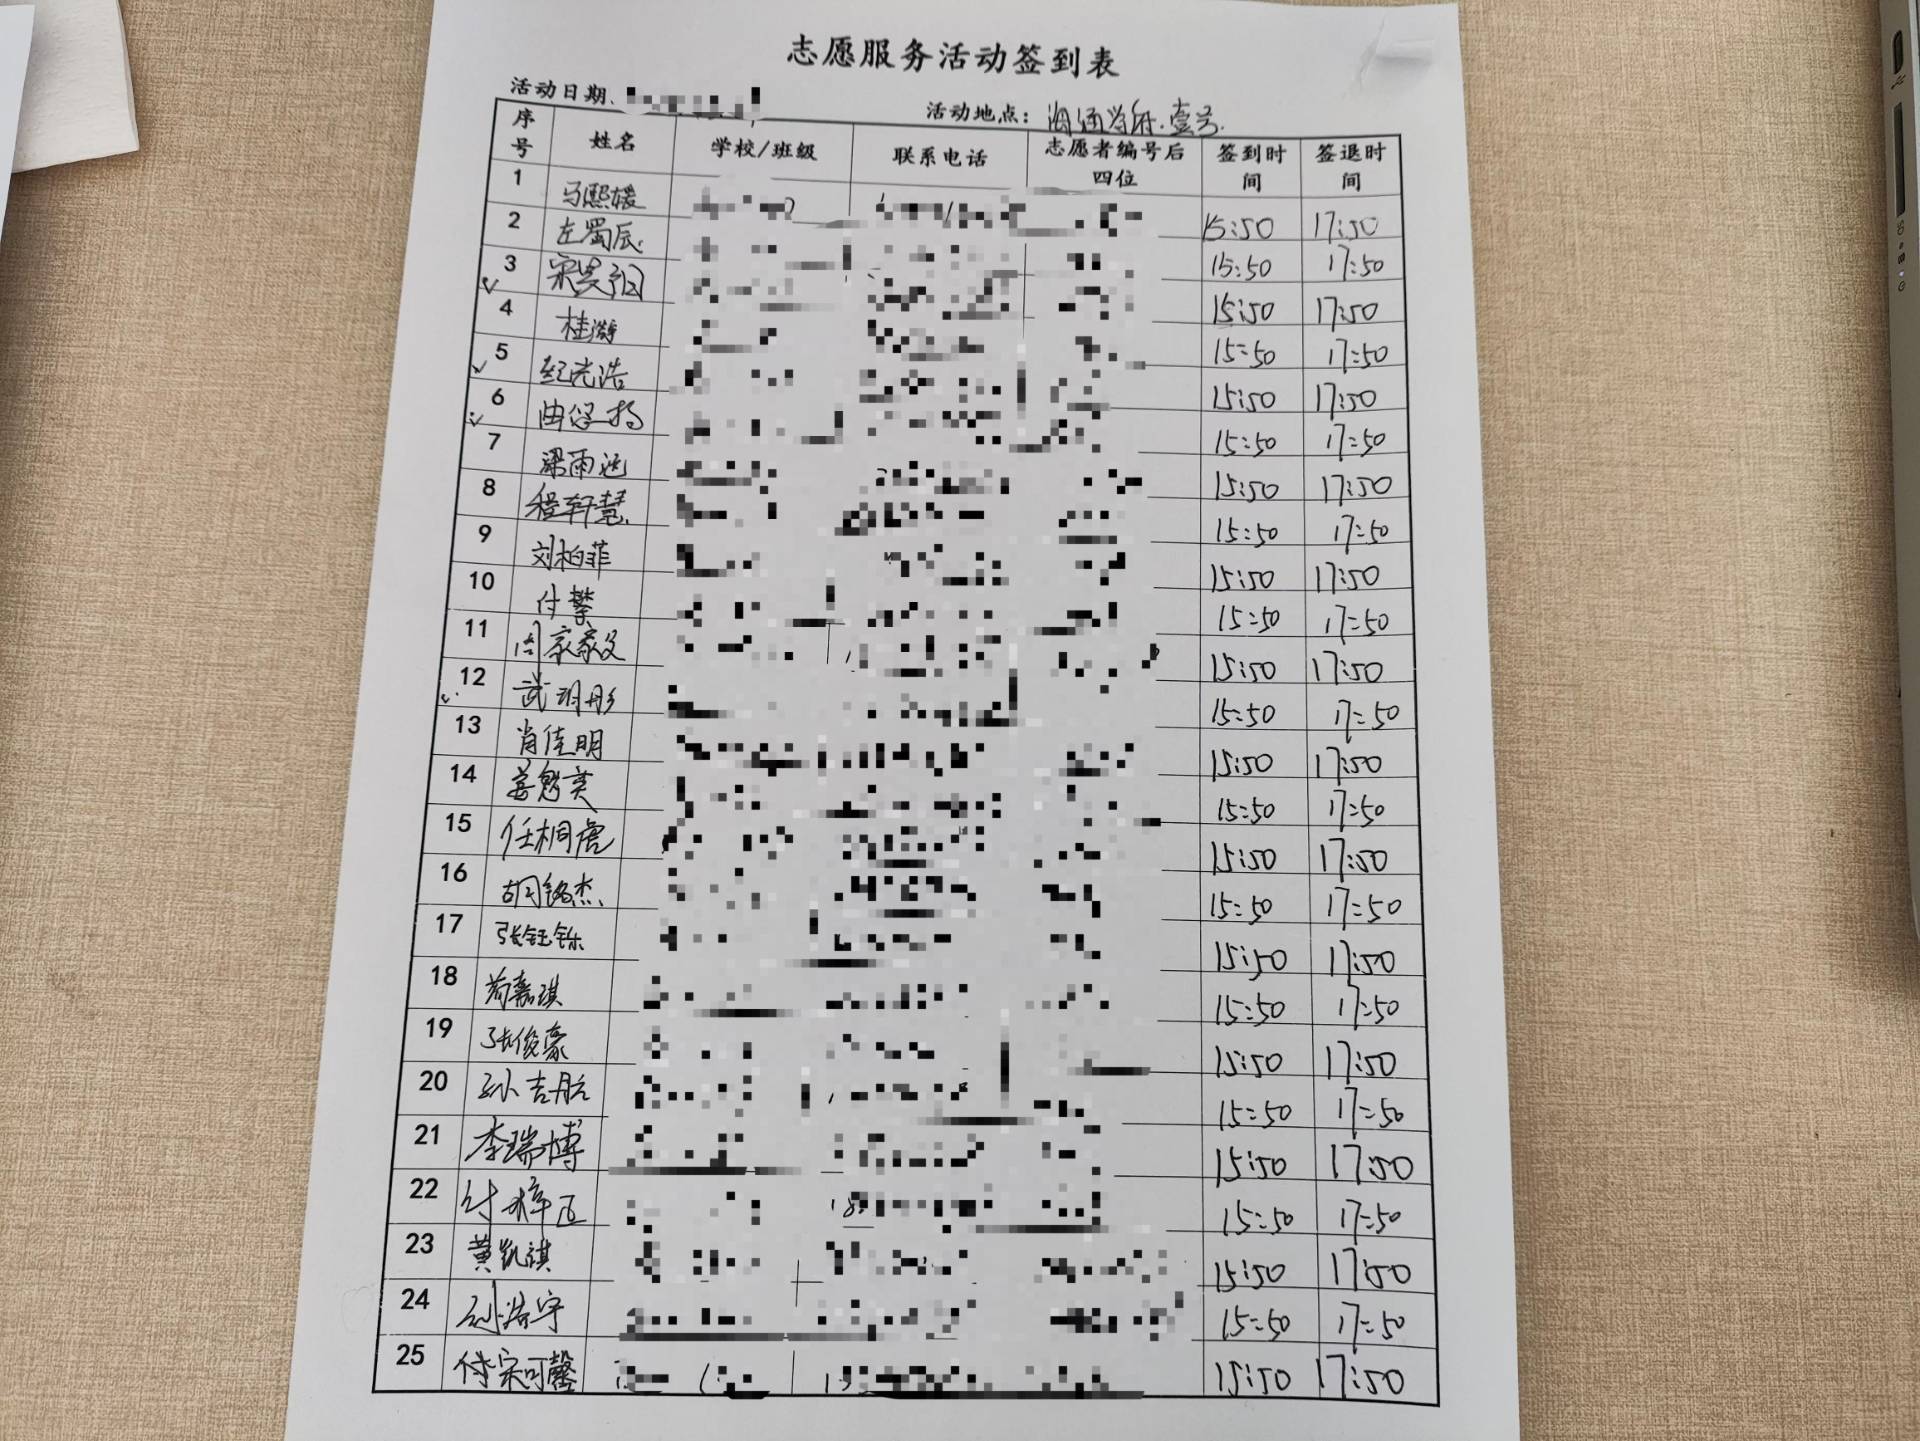 志愿服务活动签到表
活动日期 活动地点：海通学府.壹号.
序号 姓名 学校/班级 联系电话 志愿者编号后四位 签到时间 签退时间
1 马熙媛 15:50 17:50
2 左蜀辰 15:50 17:50
3 15:50 17:50
4 桂游 15:50 17:50
5 纪光浩 15:50 17:50
6 15:50 17:50
7 梁雨涵 15:50 17:50
8 程轩慧 15:50 17:50
9 刘柏菲 15:50 17:50
10 付繁 15:50 17:50
11 15:50 17:50
12 武玥彤 15:50 17:50
13 肖佳明 15:50 17:50
14 15:50 17:50
15 任桐虎 15:50 17:50
16 胡铭杰 15:50 17:50
17 张钰铄 15:50 17:50
18 嘉琪 15:50 17:50
19 张俊豪 15:50 17:50
20 孙吉航 15:50 17:50
21 李瑞博 15:50 17:50
22 付梓 15:50 17:50
23 黄凯祺 15:50 17:50
24 浩宇 15:50 17:50
25 付宗可馨 15:50 17:50